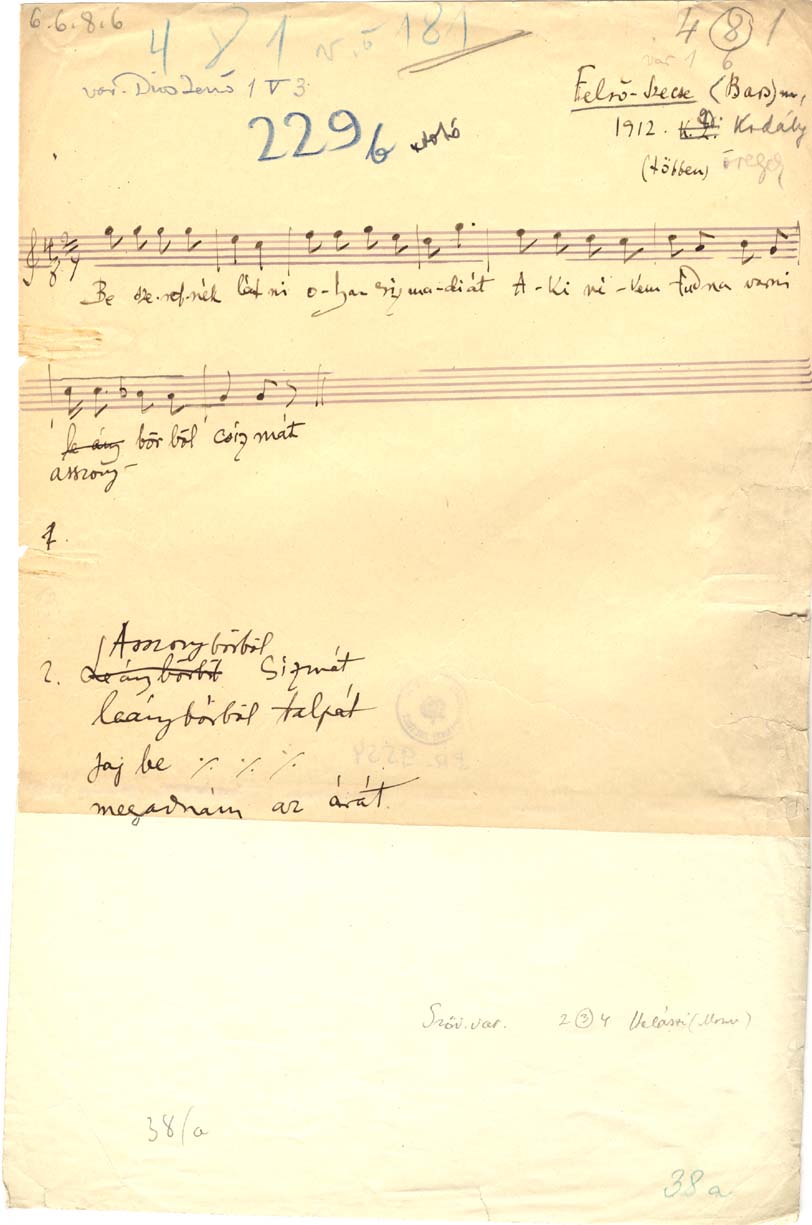 6.6.8.6
4 8 1
181
4 8 1
var 1 6
var. Diósjenő 1 V 3
Felső-Szecse (Bars) m,
229 b utolsó
1912. K. Z. Kodály
(többen) öregek
Be sze-ret-nék lát ni o-lyan csizma-diát A-ki né-kem tudna varni
le ány bőr ből csiz mát
asszony-
1.
Asszonybőrből
2. Leánybőrből Sizmát
leánybőrből talpát
jaj be ٪ ٪ ٪
megadnám az árát.
Szöv. var. 2 3 4
38/a
38 a